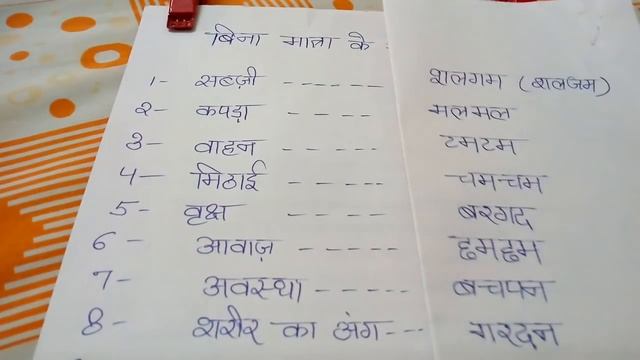 बिना मात्रा के :
1- सब्ज़ी ------ शलगम (शलजम)
2- कपड़ा ---- मलमल
3- वाहन ----- टमटम
4- मिठाई ----- चमचम
5- वृक्ष ---- बरगद
6- आवाज़ ----- छमछम
7- अवस्था ----- बचपन
8- शरीर का अंग --- गरदन